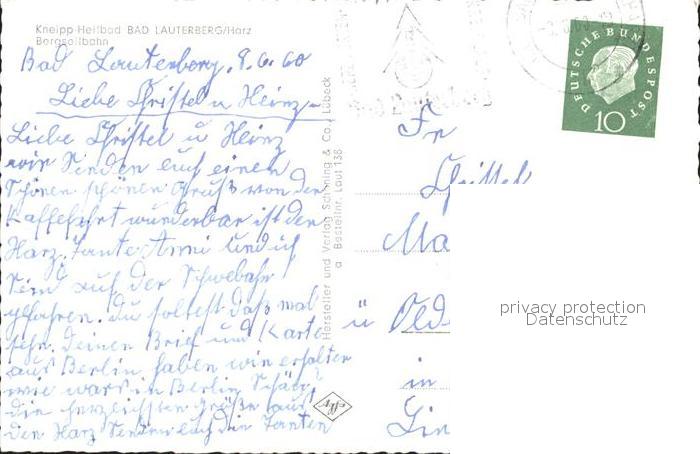 Kneipp-Heilbad BAD LAUTERBERG/Harz
Bergseilbahn
Bad Lauterberg, 9.6.60
Liebe Christel u Heinz
Liebe Christel u Heinz
wir Senden euch einen
Schönen schönen Gruß von der
Kaffefahrt wunderbar ist der
Harz. Tante Anni und ich
Sind auf der Schwebebahn
gefahren. Du solltest daß mal
sehn. Deinen Brief und Karte
aus Berlin haben wir erhalten
wie wars in Berlin Schön?
die herzlichsten Grüße aus
den Harz Senden euch die Tanten
Hersteller und Verlag Schöning & Co., Lübeck
Bestellnr. Laut 138
DEUTSCHE BUNDESPOST
10
Fr
Christel
Ma
ü Old
in
Lin
Agfa
privacy protection
Datenschutz